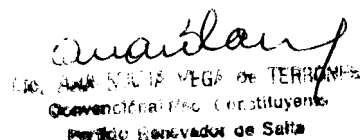 Lic. ANA SOFIA VEGA de TERRONES
Convencional Nac. Constituyente
Partido Renovador de Salta